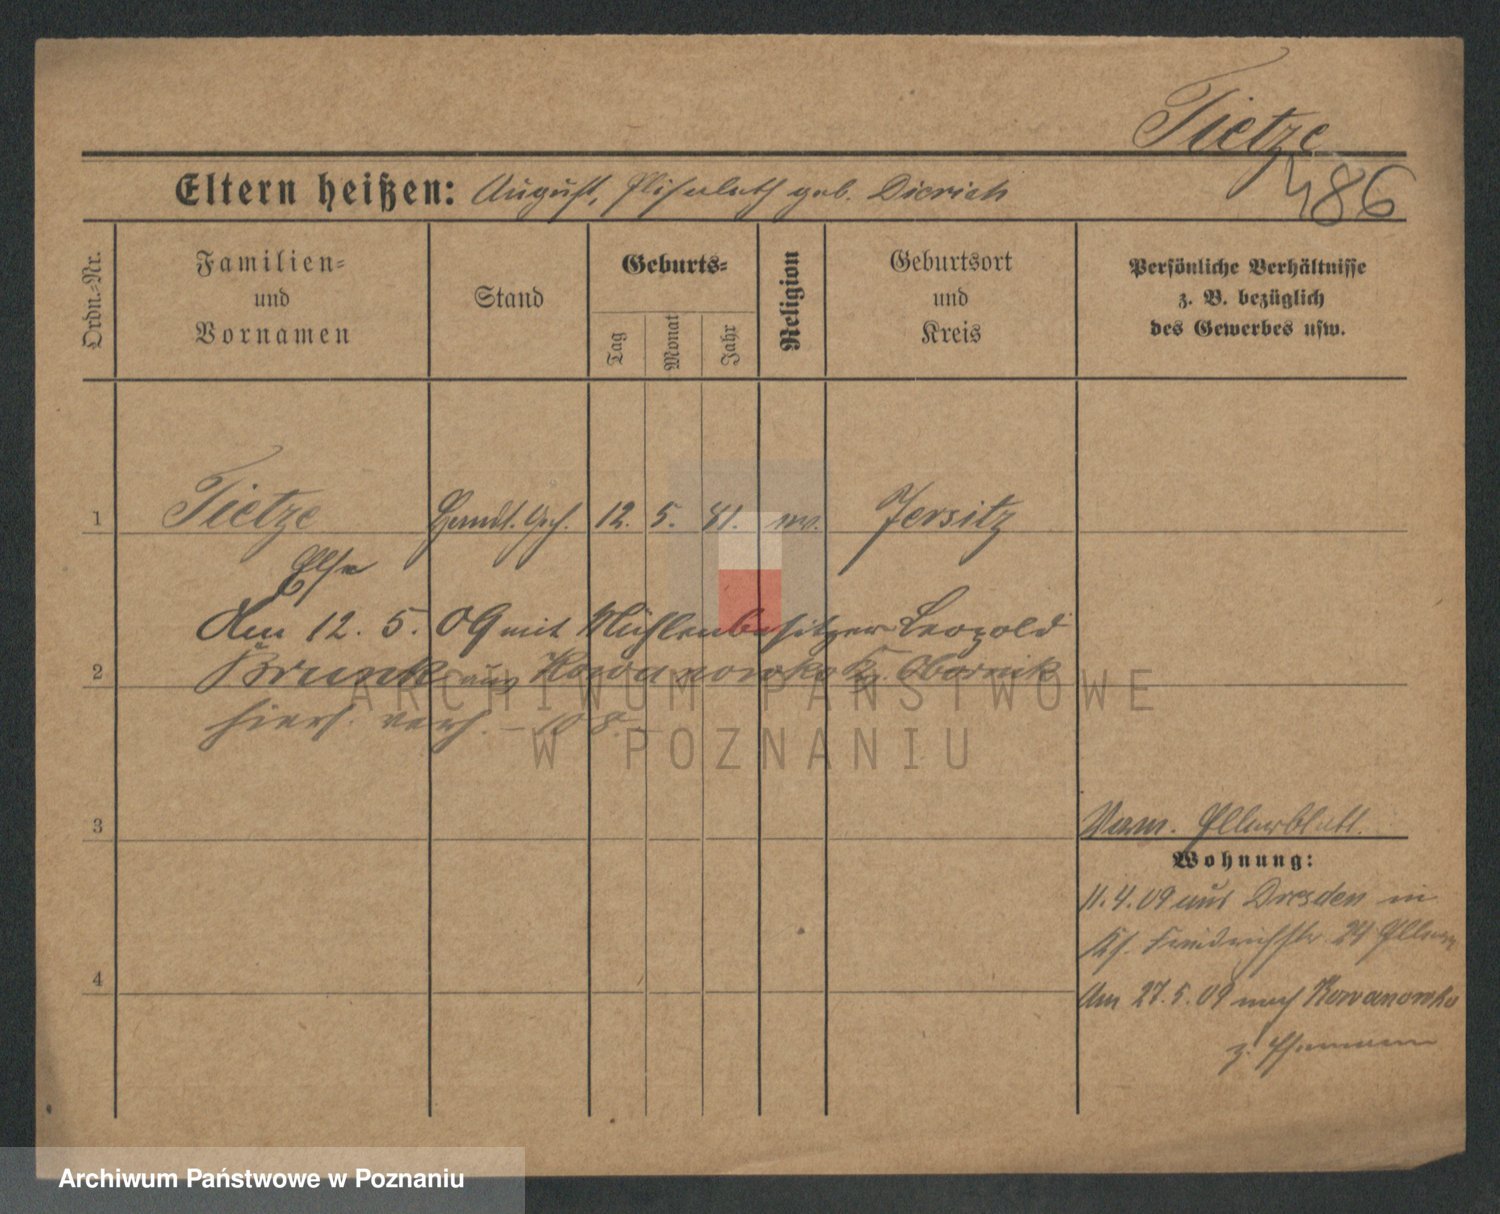 Tietze
486
Eltern heißen: August, Elisabeth geb. Dierich
Ordn.=Nr.
Familien=
und
Vornamen
Stand
Geburts=
Tag
Monat
Jahr
Religion
Geburtsort
und
Kreis
Persönliche Verhältnisse
z. B. bezüglich
des Gewerbes usw.
1 Tietze Handl. Geh. 12. 5. 81. ev. Jersitz
Else
Am 12. 5. 09 mit Mühlenbesitzer Leopold
2 Brunk aus Kowanowko Kr. Obornik
hiers. verh.
3
Verm. Elternblatt.
Wohnung:
11. 4. 09 aus Dresden in
Friedrichstr. 24 Eltern
4
Am 27. 5. 09 nach Kowanowko
z. Ehemann
ARCHIWUM PAŃSTWOWE
W POZNANIU
Archiwum Państwowe w Poznaniu